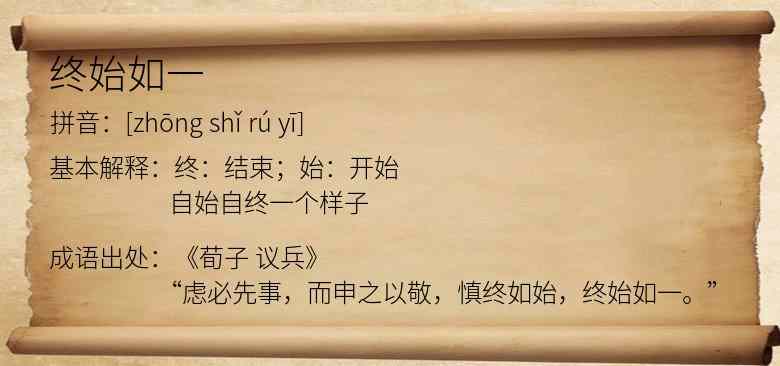 终始如一
拼音：[zhōng shǐ rú yī]
基本解释：终：结束；始：开始
自始自终一个样子
成语出处：《荀子 议兵》
“虑必先事，而申之以敬，慎终如始，终始如一。”